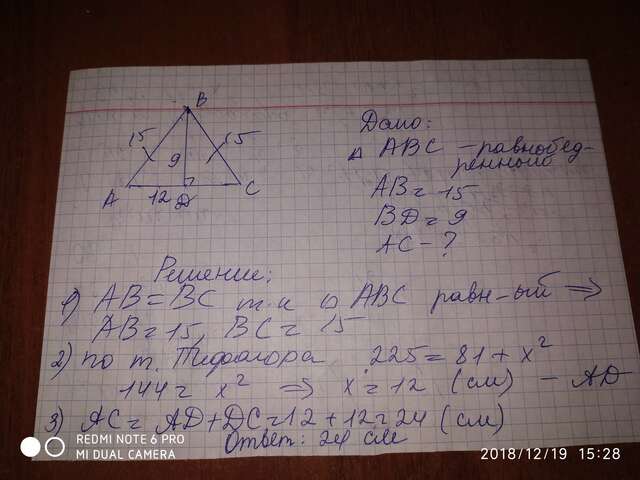 B
15
15
9
A
12
D
C
Дано:
Δ ABC - равнобед-
ренный
AB = 15
BD = 9
AC - ?
Решение:
1) AB = BC т.к Δ ABC равн-ый ⇒
AB = 15, BC = 15
2) по т. Пифагора 225 = 81 + x²
144 = x² ⇒ x = 12 (см) - AD
3) AC = AD + DC = 12 + 12 = 24 (см)
Ответ: 24 см
REDMI NOTE 6 PRO
MI DUAL CAMERA
2018/12/19 15:28